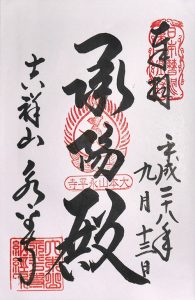 奉拝
平成二十八年
九月十三日
承陽殿
大本山永平寺
吉祥山
永平寺